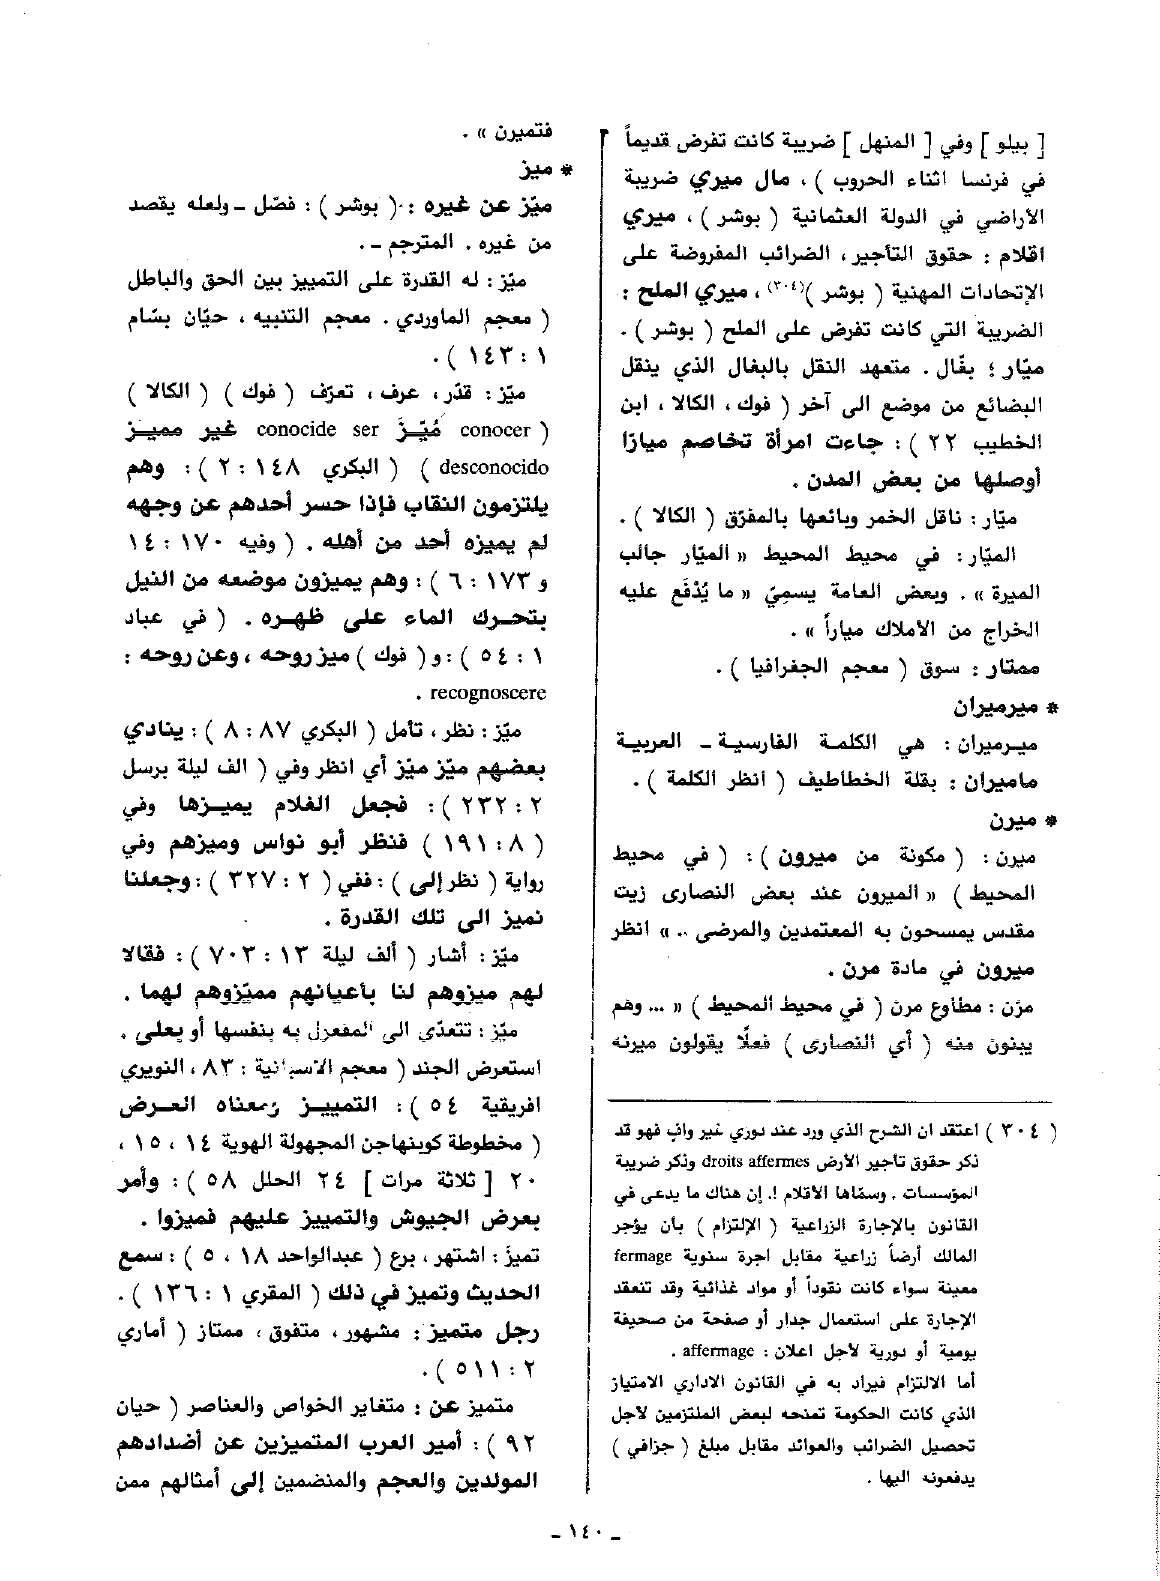 [ بيلو ] وفي [ المنهل ] ضريبة كانت تفرض قديماً
في فرنسا اثناء الحروب ) ، مال ميري ضريبة
الأراضي في الدولة العثمانية ( بوشر ) ، ميري
اقلام : حقوق التأجير ، الضرائب المفروضة على
الإتحادات المهنية ( بوشر )(٣٠٤) ، ميري الملح :
الضريبة التي كانت تفرض على الملح ( بوشر ) .
ميّار ؛ بغّال . متعهد النقل بالبغال الذي ينقل
البضائع من موضع الى آخر ( فوك ، الكالا ، ابن
الخطيب ٢٢ ) : جاءت امرأة تخاصم ميارًا
أوصلها من بعض المدن .
ميّار : ناقل الخمر وبائعها بالمفرّق ( الكالا ) .
الميّار : في محيط المحيط « الميّار جالب
الميرة » . وبعض العامة يسمِيّ « ما يُدْفَع عليه
الخراج من الأملاك مياراً » .
ممتار : سوق ( معجم الجغرافيا ) .
* ميرميران
ميرميران : هي الكلمة الفارسية ـ العربية
ماميران : بقلة الخطاطيف ( انظر الكلمة ) .
* ميرن
ميرن : ( مكونة من ميرون ) : ( في محيط
المحيط ) « الميرون عند بعض النصارى زيت
مقدس يمسحون به المعتمدين والمرضى .. » انظر
ميرون في مادة مرن .
مرّن : مطاوع مرن ( في محيط المحيط ) « ... وهم
يبنون منه ( أي النصارى ) فعلًا يقولون ميرنه
( ٣٠٤ ) اعتقد ان الشرح الذي ورد عند دوزي غير وافٍ فهو قد
ذكر حقوق تأجير الأرض droits affermes وذكر ضريبة
المؤسسات . وسمّاها الأقلام !. إن هناك ما يدعى في
القانون بالإجارة الزراعية ( الإلتزام ) بأن يؤجر
المالك أرضاً زراعية مقابل اجرة سنوية fermage
معينة سواء كانت نقوداً أو مواد غذائية وقد تنعقد
الإجارة على استعمال جدار أو صفحة من صحيفة
يومية أو دورية لأجل اعلان : affermage .
أما الالتزام فيراد به في القانون الاداري الامتياز
الذي كانت الحكومة تمنحه لبعض الملتزمين لأجل
تحصيل الضرائب والعوائد مقابل مبلغ ( جزافي )
يدفعونه اليها .
فتميرن » .
* ميز
ميّز عن غيره : ( بوشر ) : فصّل ـ ولعله يقصد
من غيره . المترجم ـ .
ميّز : له القدرة على التمييز بين الحق والباطل
( معجم الماوردي . معجم التنبيه ، حيّان بسّام
١ : ١٤٣ ) .
ميّز : قدّر ، عرف ، تعرّف ( فوك ) ( الكالا )
( conocer مُيِّزَ conocide ser غير مميز
desconocido ) ( البكري ١٤٨ : ٢ ) : وهم
يلتزمون النقاب فإذا حسر أحدهم عن وجهه
لم يميزه أحد من أهله . ( وفيه ١٧٠ : ١٤
و ١٧٣ : ٦ ) : وهم يميزون موضعه من النيل
بتحرك الماء على ظهره . ( في عباد
١ : ٥٤ ) : و ( فوك ) ميز روحه ، وعن روحه :
recognoscere .
ميّز : نظر ، تأمل ( البكري ٨٧ : ٨ ) : ينادي
بعضهم ميّز ميّز أي انظر وفي ( الف ليلة برسل
٢ : ٢٣٢ ) : فجعل الغلام يميزها وفي
( ٨ : ١٩١ ) فنظر أبو نواس وميزهم وفي
رواية ( نظر إلى ) : ففي ( ٢ : ٣٢٧ ) : وجعلنا
نميز الى تلك القدرة .
ميّز : أشار ( ألف ليلة ١٣ : ٧٠٣ ) : فقالا
لهم ميزوهم لنا بأعيانهم مميّزوهم لهما .
ميّز : تتعدّى الى المفعول به بنفسها أو بعلى .
استعرض الجند ( معجم الاسبانية : ٨٣ ، النويري
افريقية ٥٤ ) : التمييز ومعناه العرض
( مخطوطة كوبنهاجن المجهولة الهوية ١٤ ، ١٥ ،
٢٠ [ ثلاثة مرات ] ٢٤ الحلل ٥٨ ) : وأمر
بعرض الجيوش والتمييز عليهم فميزوا .
تميزَ : اشتهر ، برع ( عبدالواحد ١٨ ، ٥ ) : سمع
الحديث وتميز في ذلك ( المقري ١ : ١٣٦ ) .
رجل متميز : مشهور ، متفوق ، ممتاز ( أماري
٢ : ٥١١ ) .
متميز عن : متغاير الخواص والعناصر ( حيان
٩٢ ) : أمير العرب المتميزين عن أضدادهم
المولدين والعجم والمنضمين إلى أمثالهم ممن
ـ ١٤٠ ـ